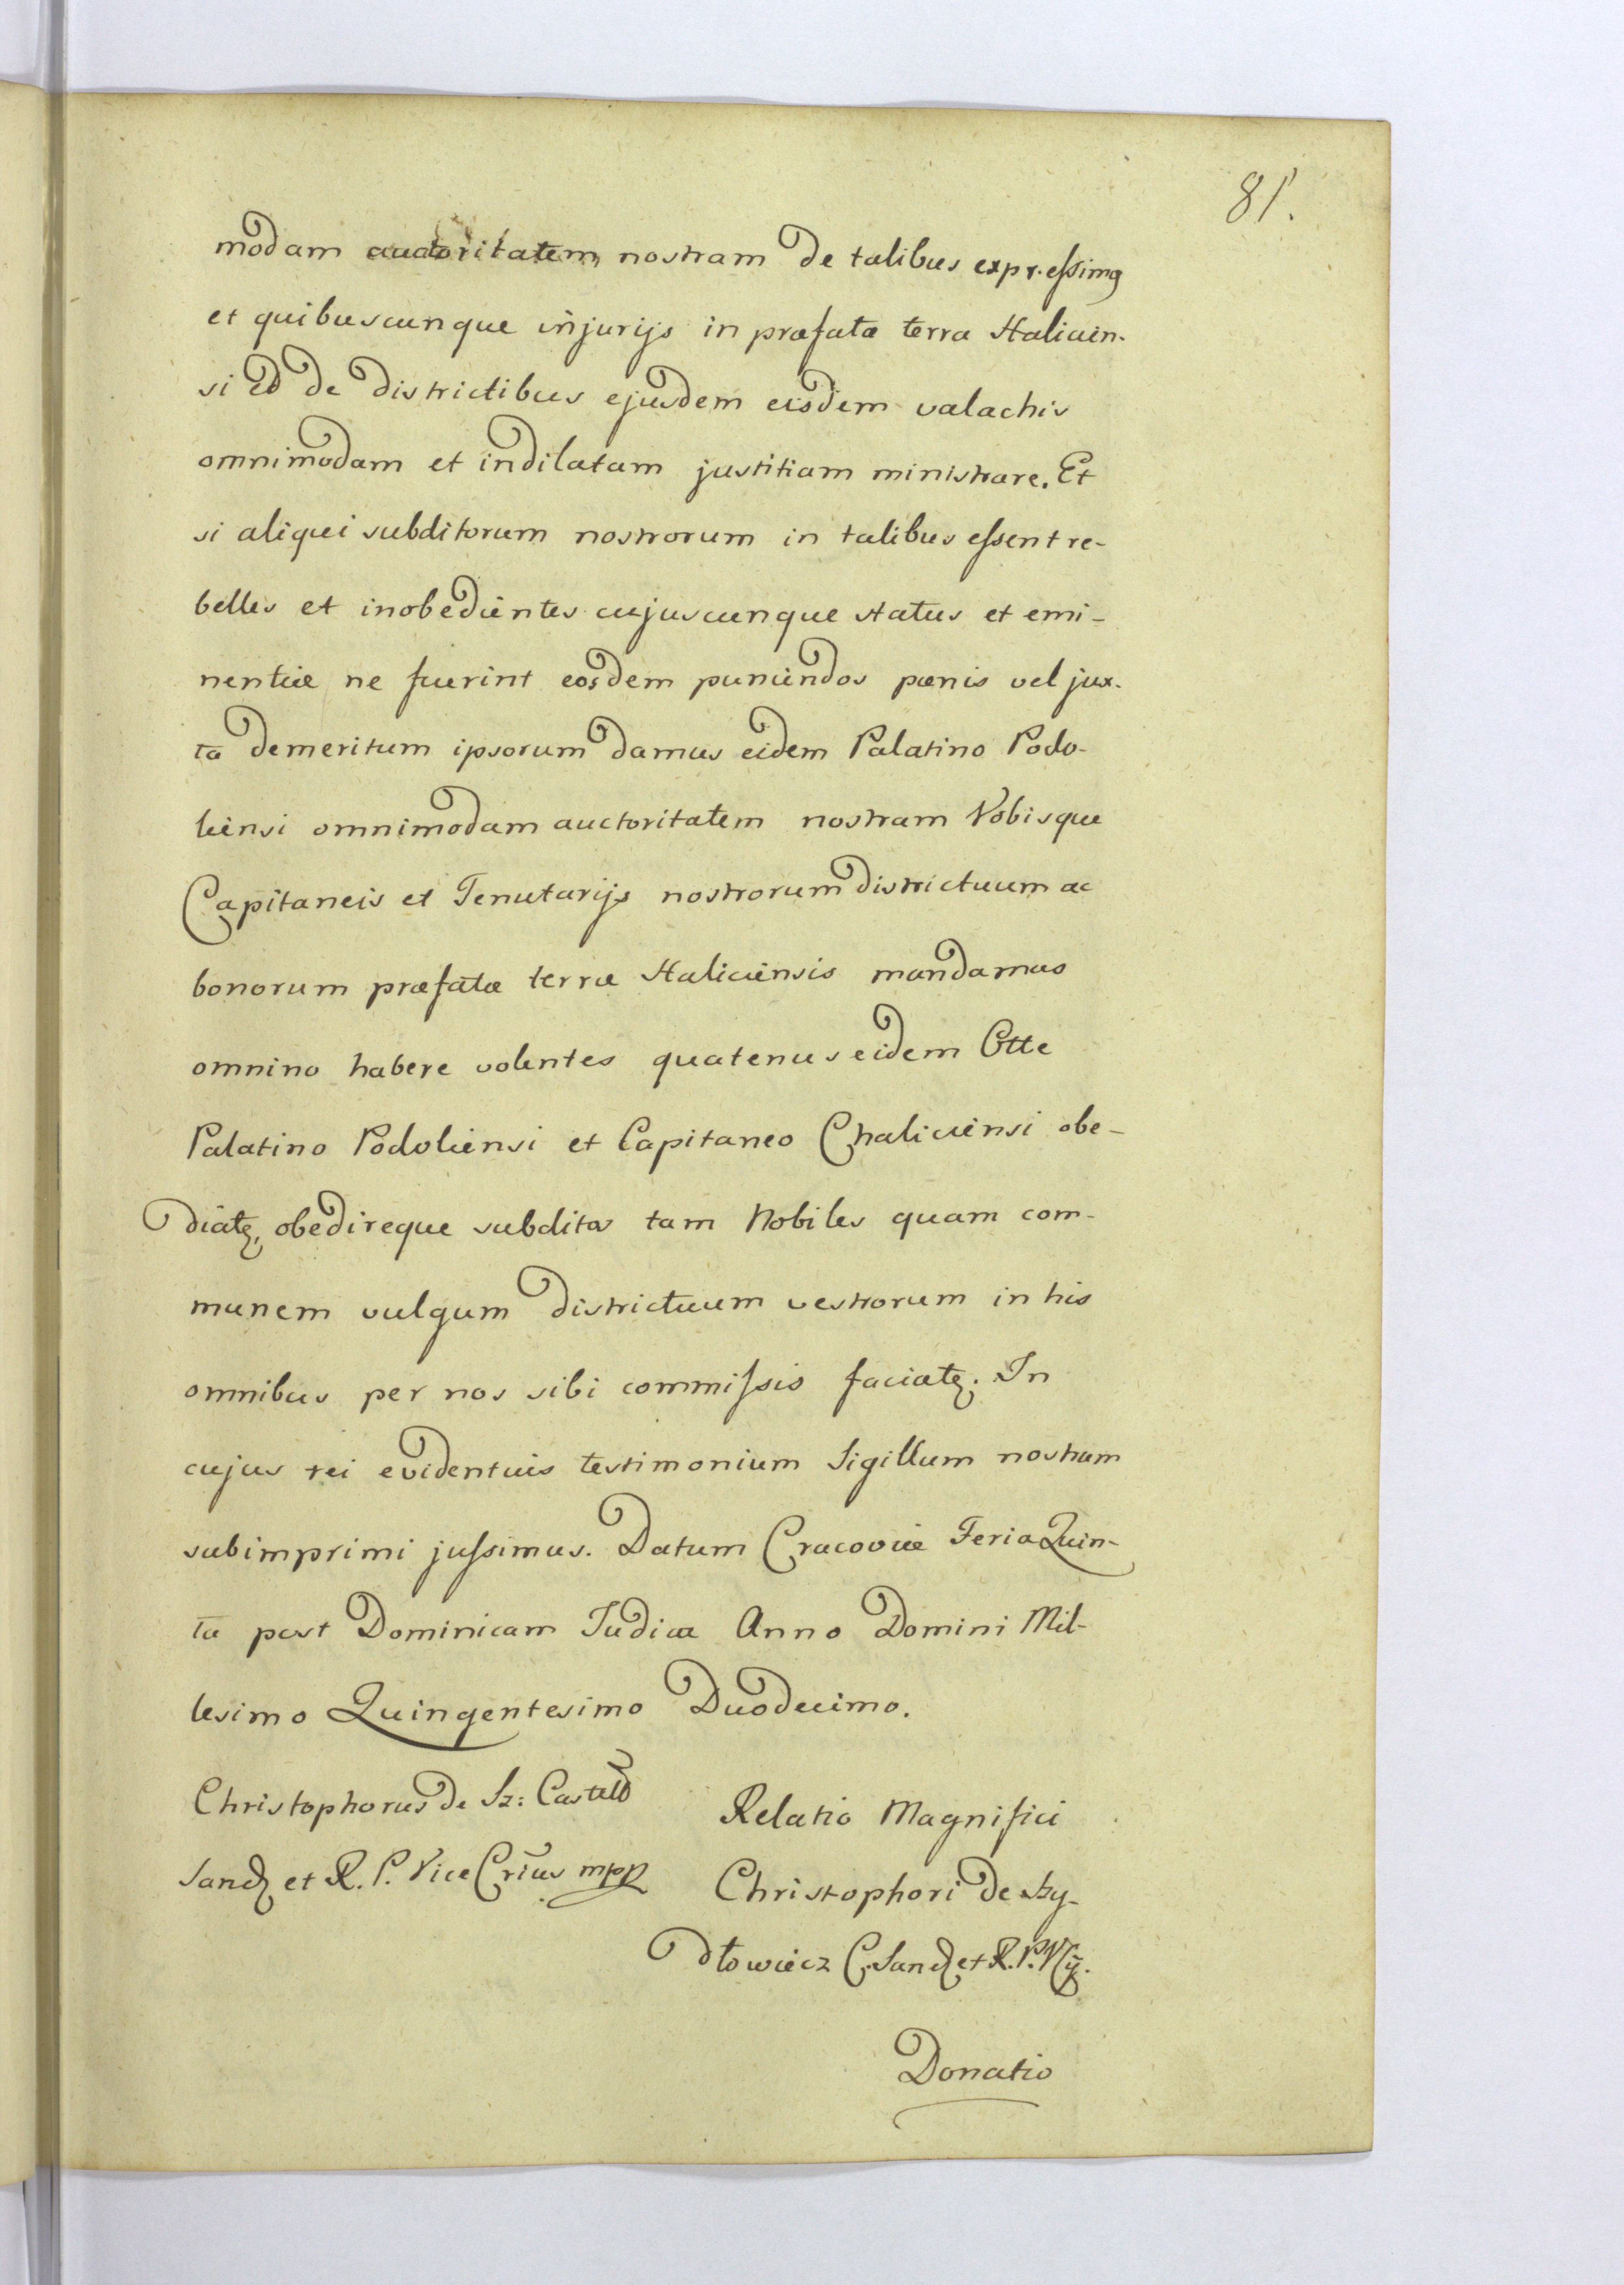 81.
modam auctoritatem nostram de talibus expressimq
et quibuscunque injurijs in præfata terra Halicien-
si ed de districtibus ejusdem eisdem valachis
omnimodam et indilatam justitiam ministrare. Et
si aliqui subditorum nostrorum in talibus essent re-
belles et inobedientes cujuscunque status et emi-
nentiæ ne fuerint eosdem puniendos pœnis vel jux-
ta demeritum ipsorum damus eidem Palatino Podo-
liensi omnimodam auctoritatem nostram Vobisque
Capitaneis et Tenutarijs nostrorum districtuum ac
bonorum præfatæ terræ Haliciensis mandamus
omnino habere volentes quatenus eidem Otte
Palatino Podoliensi et Capitaneo Chaliciensi obe-
diatz, obedireque subditos tam Nobiles quam com-
munem vulgum districtuum vestrorum in his
omnibus per nos sibi commissis faciatz. In
cujus rei evidentius testimonium Sigillum nostrum
subimprimi jussimus. Datum Cracoviæ Feria Quin-
ta post Dominicam Judica Anno Domini Mil-
lesimo Quingentesimo Duodecimo.
Christophorus de Sz: Castell
Sand et R. P. Vice Crius mpp
Relatio Magnifici
Christophori de Szy-
dłowiecz C. Sand et R. P.
Donatio